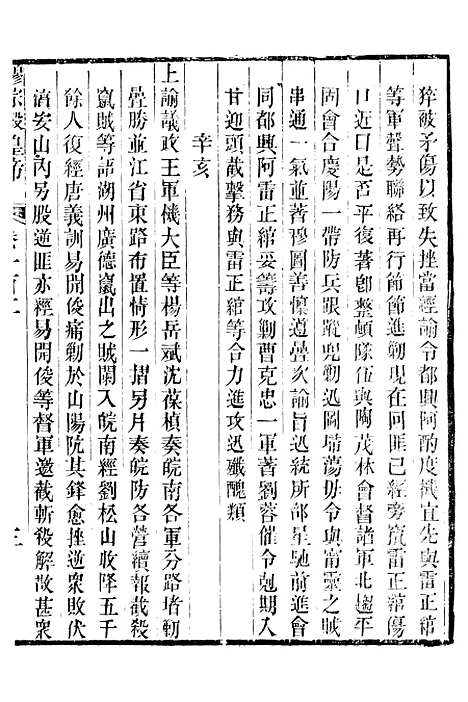 猝被矛傷以致失挫當經諭令都興阿酌度機宜先與雷正綰
等軍聲勢聯絡再行節節進勦現在回匪已經旁竄雷正綰傷
口近日是否平復著卽整頓隊伍與陶茂林會督諸軍北趨平
固會合慶陽一帶防兵跟蹤兜勦迅圖埽蕩毋令與甯靈之賊
串通一氣並著穆圖善懍遵疊次諭旨迅統所部星馳前進會
同都興阿雷正綰妥籌攻勦曹克忠一軍著劉蓉催令剋期入
甘迎頭截擊務與雷正綰等合力進攻迅殲醜類
辛亥
上諭議政王軍機大臣等楊岳斌沈葆楨奏皖南各軍分路堵勦
疊勝並江省東路布置情形一摺另片奏皖防各營續報截殺
竄賊等語湖州廣德竄出之賊闌入皖南經劉松山收降五千
餘人復經唐義訓易開俊痛勦於山陽阬其鋒愈挫逆衆敗伏
濆安山內另股逆匪亦經易開俊等督軍邀截斬殺解散甚衆
穆宗毅皇帝
卷一百一
三